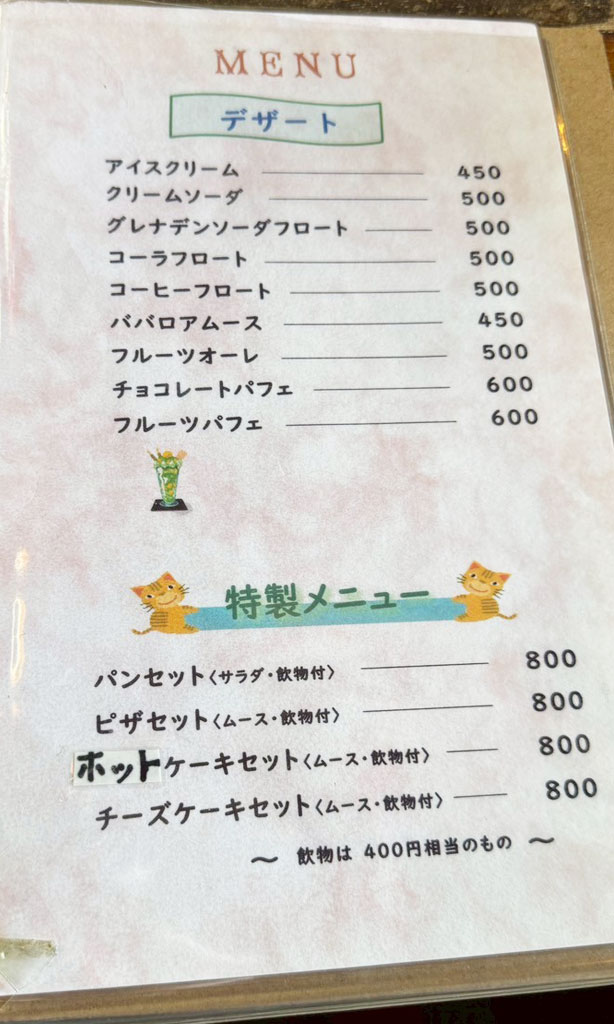 MENU
デザート
アイスクリーム 450
クリームソーダ 500
グレナデンソーダフロート 500
コーラフロート 500
コーヒーフロート 500
ババロアムース 450
フルーツオーレ 500
チョコレートパフェ 600
フルーツパフェ 600
特製メニュー
パンセット〈サラダ・飲物付〉 800
ピザセット〈ムース・飲物付〉 800
ホットケーキセット〈ムース・飲物付〉 800
チーズケーキセット〈ムース・飲物付〉 800
〜 飲物は 400円相当のもの 〜